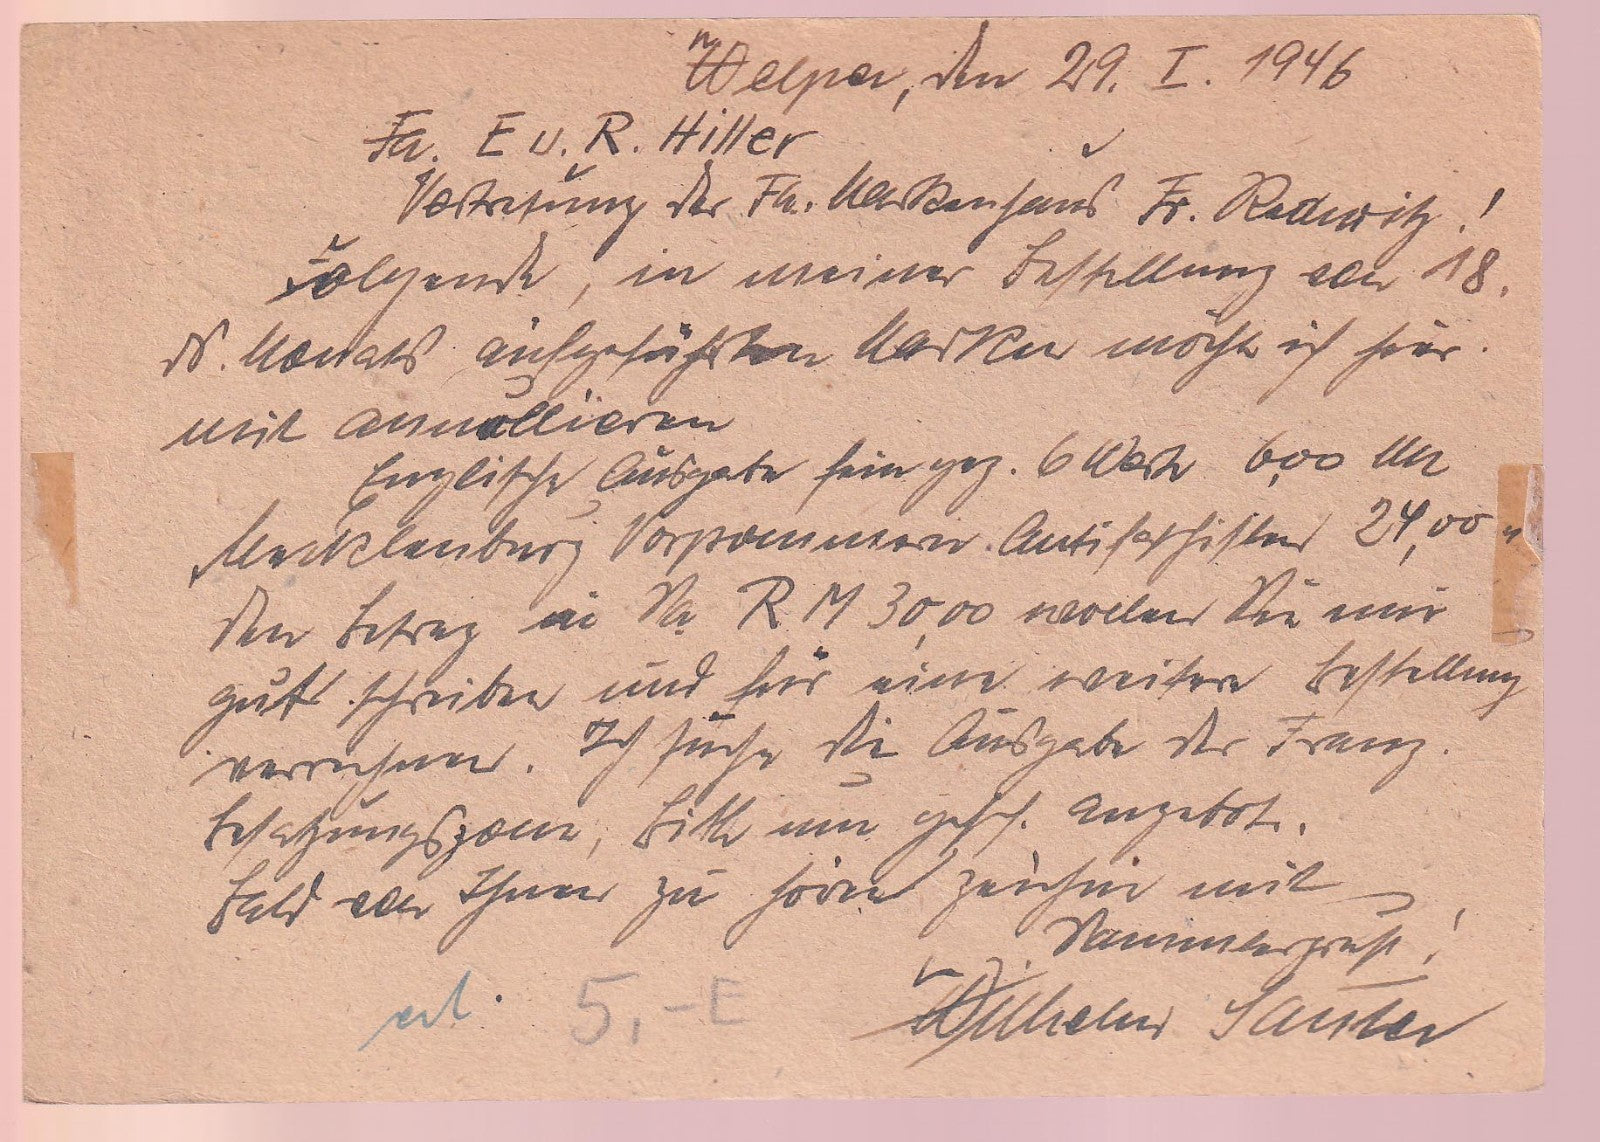 Welper, den 29. I. 1946
Fa. E u. R. Hiller
Vertretung der Fa. Markenhaus Fr. Redwitz!
Folgende, in meiner Bestellung vom 18.
ds. Monats aufgeführten Marken möchte ich hier-
mit annullieren
Englische Ausgabe fein gez. 6 Werte 6,00 M
Mecklenburg Vorpommern Antifaschisten 24,00 "
den Betrag von RM 30,00 wollen Sie mir
gut schreiben und für eine weitere Bestellung
verrechnen. Ich suche die Ausgabe der Franz.
Besatzungszone, bitte um gefl. Angebot.
Bald von Ihnen zu hören zeichne mit
Sammlergruß!
Wilhelm Sauter
erl. 5,-E